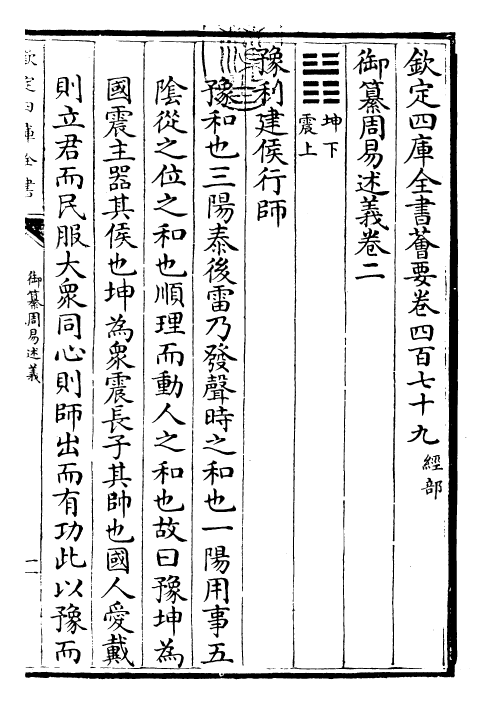 欽定四庫全書薈要卷四百七十九 經部
御纂周易述義卷二
坤下
震上
豫利建侯行師
豫和也三陽泰後雷乃發聲時之和也一陽用事五
陰從之位之和也順理而動人之和也故曰豫坤為
國震主器其侯也坤為衆震長子其帥也國人愛戴
則立君而民服大衆同心則師出而有功此以豫而
欽定四庫全書
御纂周易述義